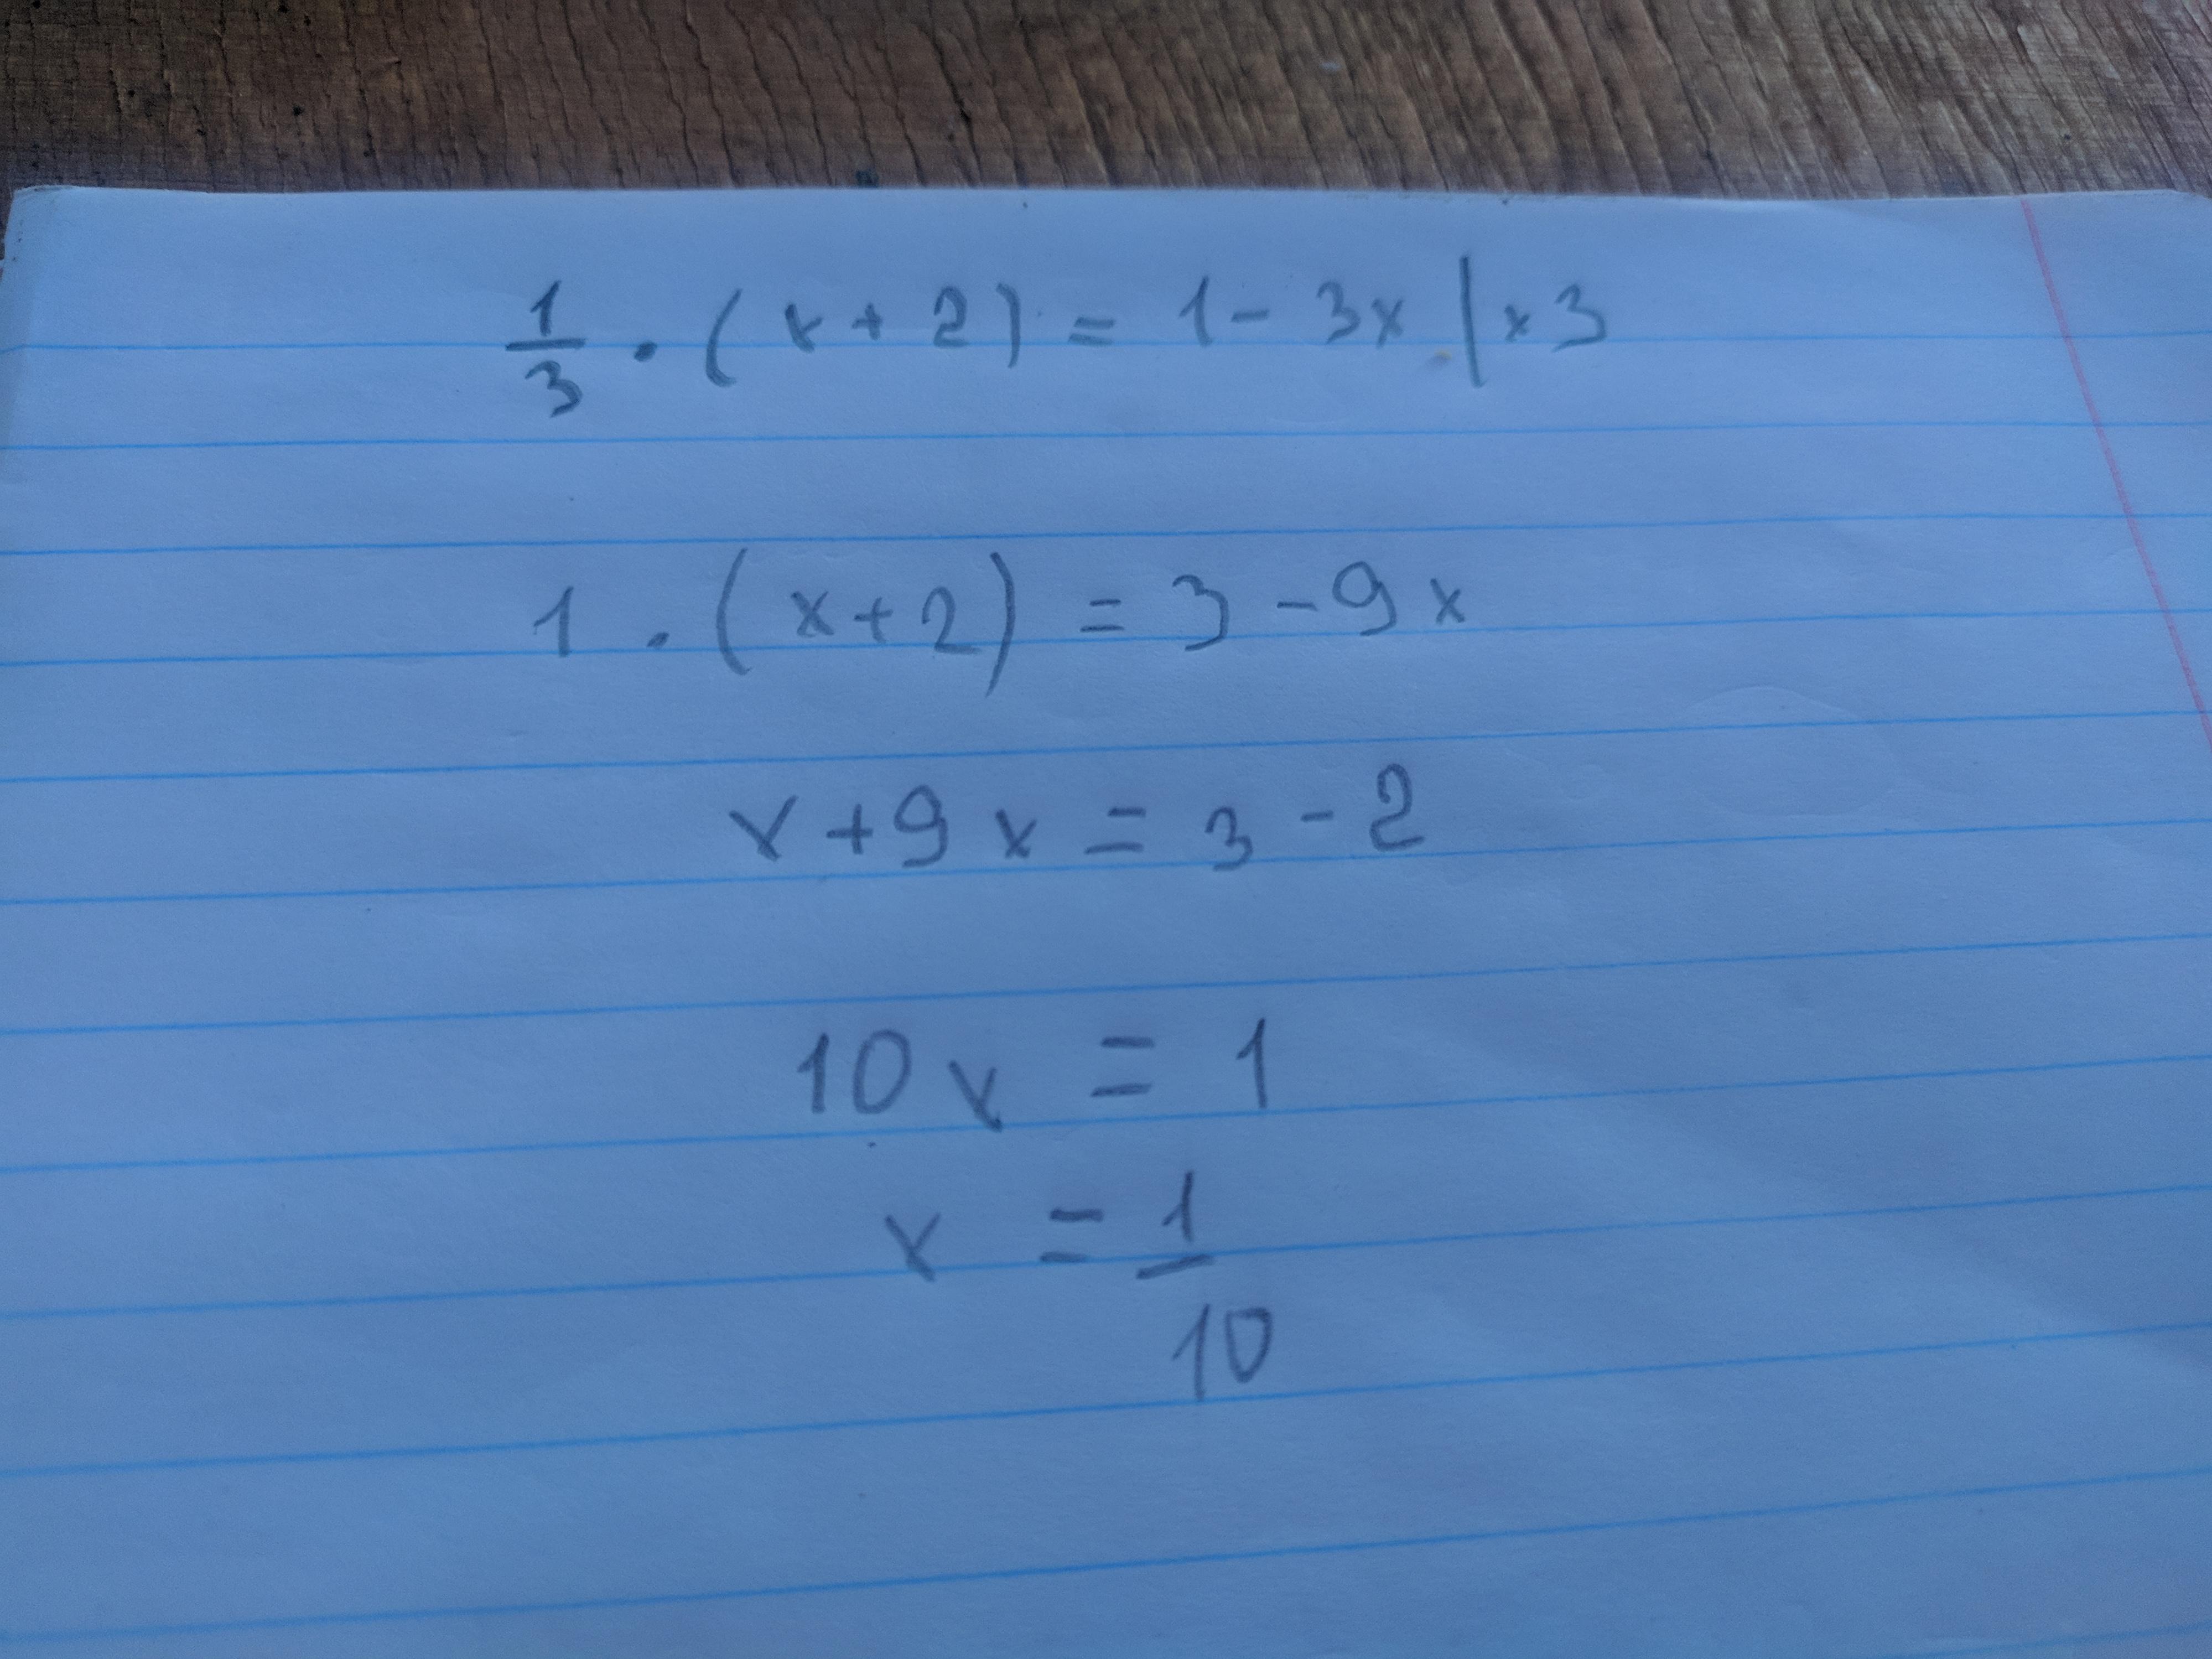 1/3 · (x + 2) = 1 - 3x | x 3
1 . (x + 2) = 3 - 9x
x + 9x = 3 - 2
10x = 1
x = 1/10